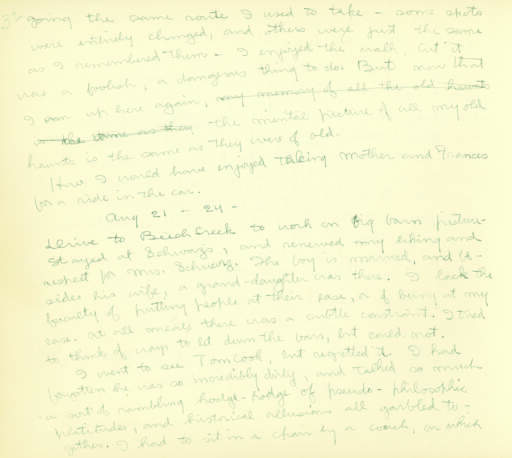 going the same route I used to take - some spots
were entirely changed, and others were just the same
as I remembered them - I enjoyed the walk, but it
was a foolish, a dangerous thing to do. But now that
I am up here again, my memory of all the old haunts
is the same as they the mental picture of all my old
haunts is the same as they were of old.
How I would have enjoyed taking Mother and Frances
for a ride in the car.
Aug 21 - 24 -
Drive to Beech Creek to work on big barn picture-
Stayed at Schwarz's, and renewed my liking and
respect for Mrs. Schwarz. The boy is married, and be-
sides his wife, a grand-daughter was there. I lack the
faculty of putting people at their ease, or of being at my
ease. At all meals there was a subtle constraint. I tried
to think of ways to let down the bars, but could not.
I went to see Tom Cook, but regretted it. I had
forgotten he was so incredibly dirty, and talked so much
a sort of rambling hodge-podge of pseudo-philosophic
platitudes, and historical allusions all garbled to-
gether. I had to sit in a chair by a couch, on which